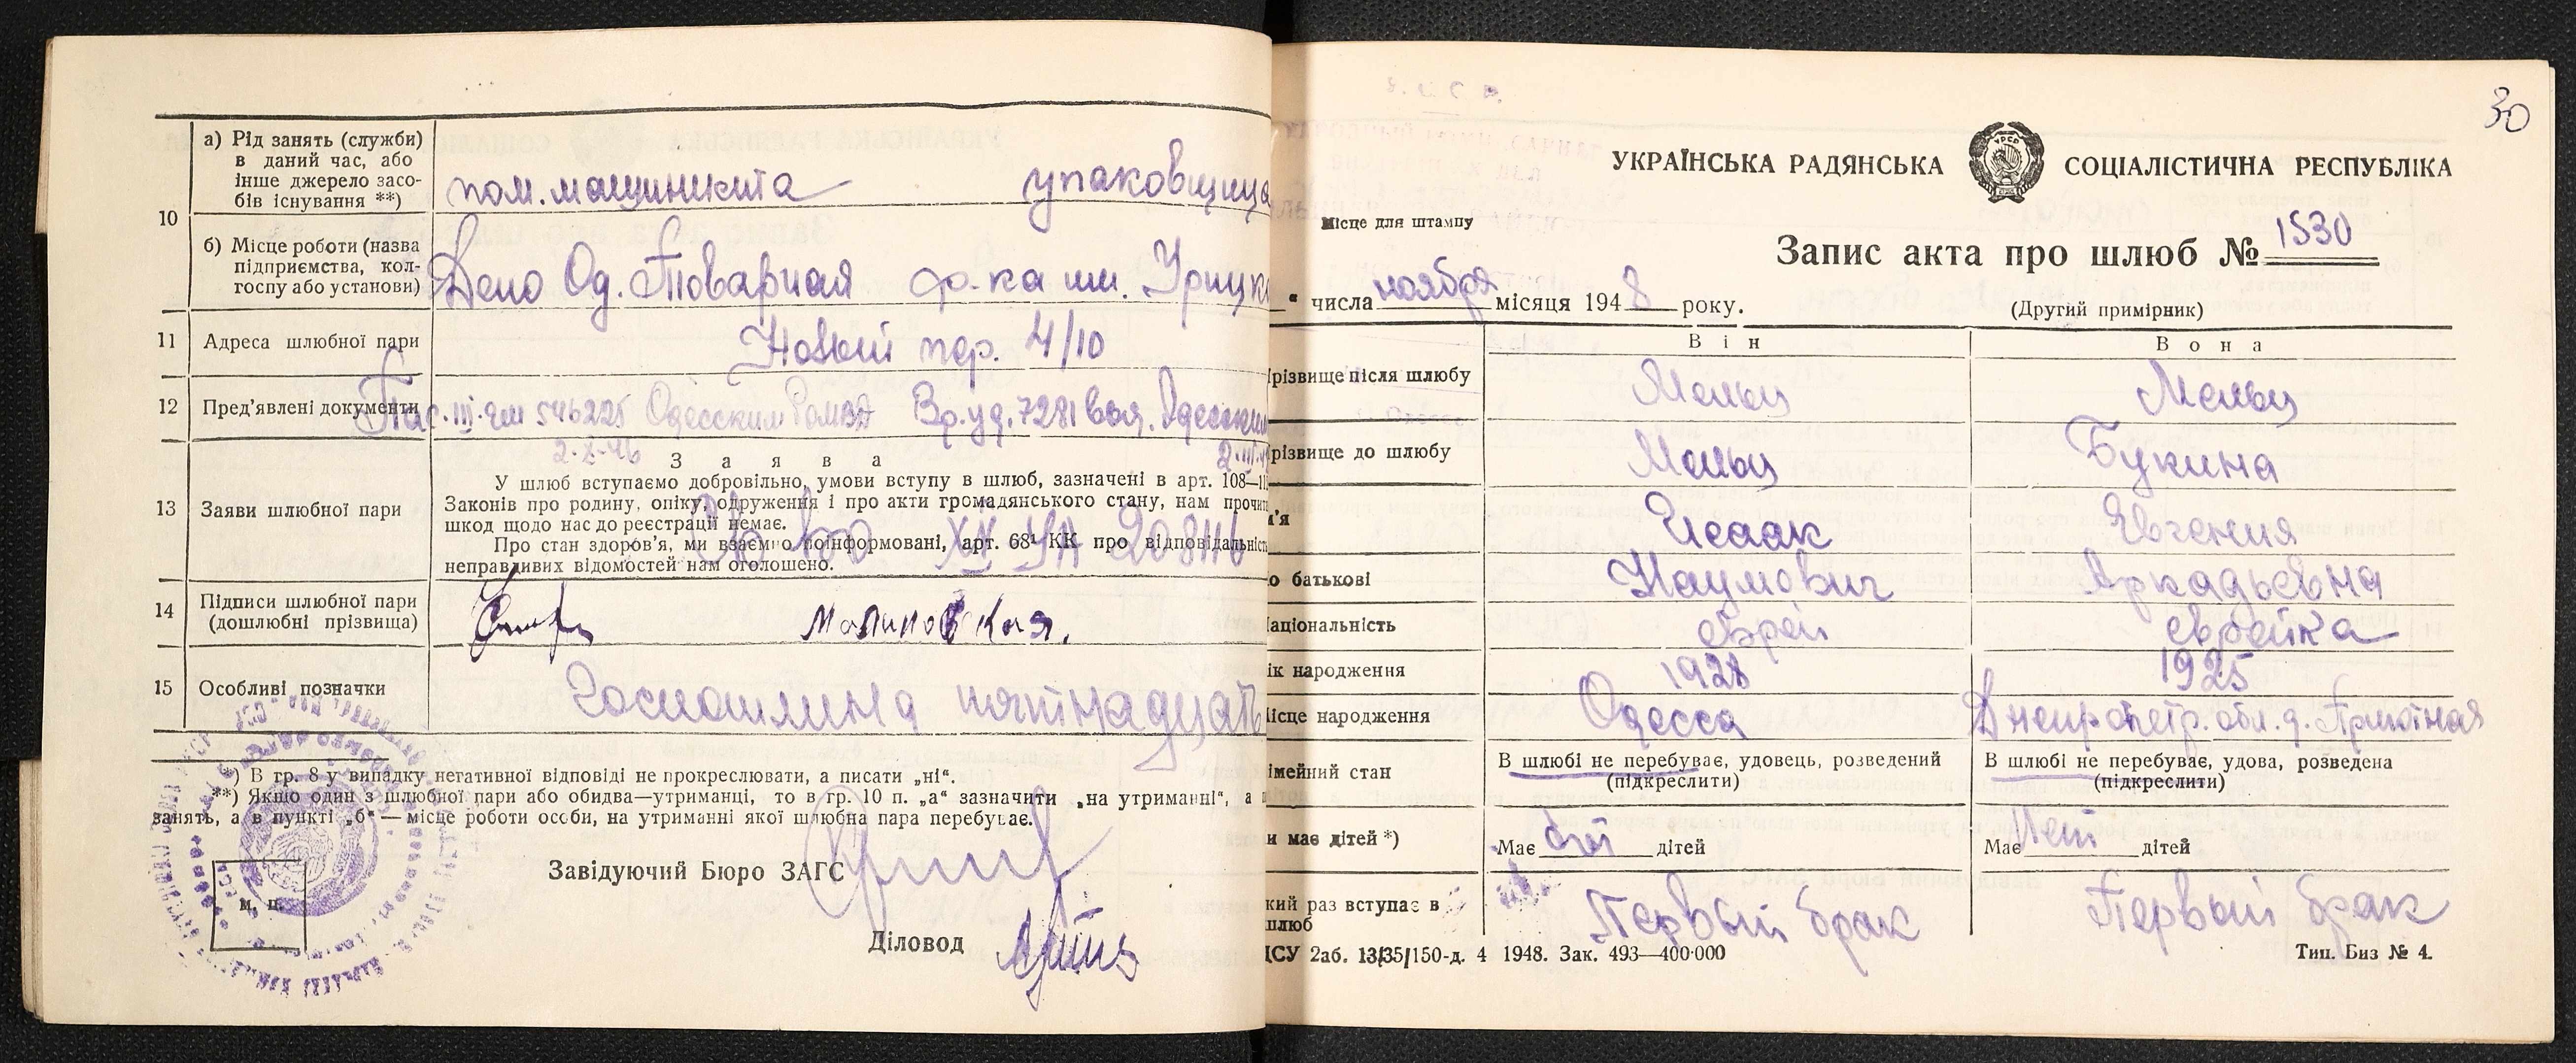 10
а) Рід занять (служби)
в даний час, або
інше джерело засо-
бів існування **)
пом. машиниста упаковщица
б) Місце роботи (назва
підприємства, кол-
госпу або установи)
Депо Од. Товарная ф-ка им. Урицк
11 Адреса шлюбної пари
Новый пер. 4/10
12 Пред'явлені документи
Пас. III 546225 Одесским Вр. уд. 7281 выд. Одесским
2-X-46
13 Заяви шлюбної пари
З а я в а
У шлюб вступаємо добровільно, умови вступу в шлюб, зазначені в арт. 108—11
Законів про родину, опіку, одруження і про акти громадянського стану, нам прочит
шкод щодо нас до реєстрації немає.
Про стан здоров'я, ми взаємно поінформовані, арт. 68¹ КК про відповідальність
неправдивих відомостей нам оголошено.
14 Підписи шлюбної пари
(дошлюбні прізвища)
Малиновская.
15 Особливі позначки
Госпошлина пятнадцать
*) В гр. 8 у випадку негативної відповіді не прокреслювати, а писати „ні“.
**) Якщо один з шлюбної пари або обидва—утриманці, то в гр. 10 п. „а“ зазначити „на утриманні“, а
занять, а в пункті „б“ — місце роботи особи, на утриманні якої шлюбна пара перебуває.
Завідуючий Бюро ЗАГС
м. п.
Діловод
30
УКРАЇНСЬКА РАДЯНСЬКА СОЦІАЛІСТИЧНА РЕСПУБЛІКА
УРСР
Місце для штампу
Запис акта про шлюб № 1530
“ числа ноября місяця 1948 року.
(Другий примірник)
Він Вона
різвище після шлюбу Мельц Мельц
різвище до шлюбу Мельц Букина
м'я Исаак Евгения
о батькові Наумович Аркадьевна
аціональність еврей еврейка
ік народження 1928 1925
ісце народження Одесса Днепропетр. обл. д. Приютная
імейний стан
В шлюбі не перебуває, удовець, розведений
(підкреслити)
В шлюбі не перебуває, удова, розведена
(підкреслити)
и має дітей *)
Має дітей
Має нет дітей
кий раз вступає в
шлюб
Первый брак Первый брак
ЦСУ 2аб. 13/35/150-д. 4 1948. Зак. 493—400·000
Тип. Биз № 4.